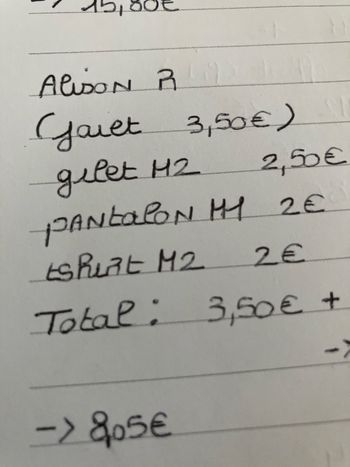 -> 15,80€
Alison R
(jouet 3,50€)
gilet H2 2,50€
pantalon H1 2€
tshirt H2 2€
Total : 3,50€ +
->
-> 8,05€